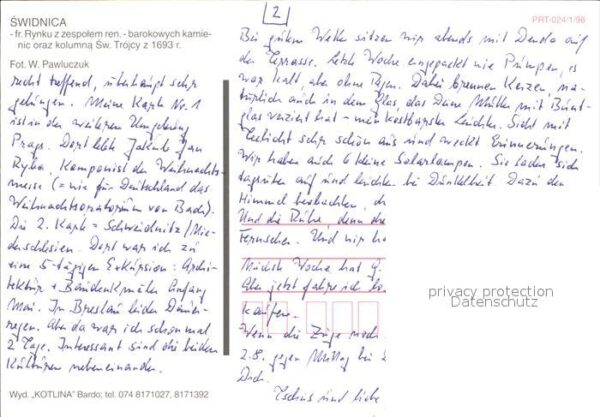 ŚWIDNICA
- fr. Rynku z zespołem ren. - barokowych kamie-
nic oraz kolumną Św. Trójcy z 1693 r.
Fot. W. Pawluczuk
recht treffend, überhaupt sehr
gelungen. Meine Karte Nr. 1
ist in der weiteren Umgebung
Prags. Dort lebte Jakub Jan
Ryba, Komponist der Weihnachts-
messe (= wie für Deutschland das
Weihnachtsoratorium von Bach).
Die 2. Karte = Schweidnitz/Nie-
derschlesien. Dort war ich zu
einer 5-tägigen Exkursion: Archi-
tektur + Baudenkmäler Anfang
Mai. In Breslau leider Dauer-
regen. Aber da war ich schon mal
2 Tage. Interessant sind die beiden
Kulturen nebeneinander.
Wyd. „KOTLINA" Bardo; tel. 074 8171027, 8171392
2
PRT-024/1/96
Bei gutem Wetter sitzen wir abends mit Denda auf
der Terrasse. Letzte Woche eingepackt wie Pumpen, es
war kalt, aber ohne Regen. Dabei brennen Kerzen, na-
türlich auch in dem Glas, das Deine Mutter mit Bunt-
glas verziert hat - mein kostbarster Leuchter. Sieht mit
Teelicht sehr schön aus und weckt Erinnerungen.
Wir haben auch 6 kleine Solarlampen. Sie laden sich
tagsüber auf und leuchten bei Dunkelheit. Dazu den
Himmel beobachten, d
Und die Ruhe, denn
Fernsehen. Und wir ha
Nächste Woche hat
Aber jetzt fahre ich
kaufen.
Wenn die Züge nach
2.8. gegen Mittag bei
Dich.
Tschüs und liebe
privacy protection
Datenschutz